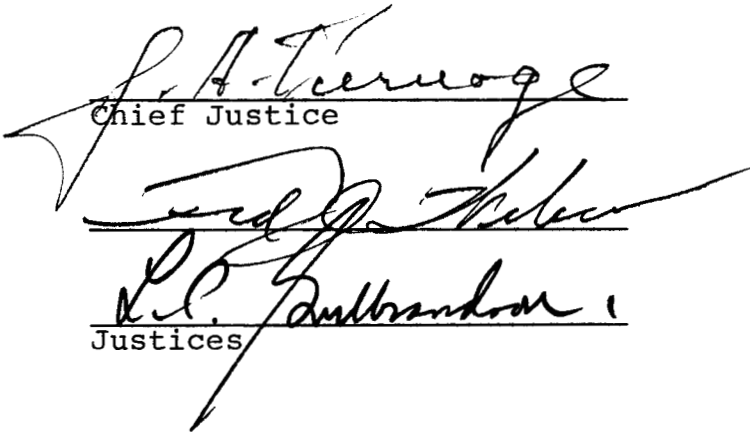 J. A. Turnage
Chief Justice
Fred J. Weber
L.C. Gulbrandson
Justices